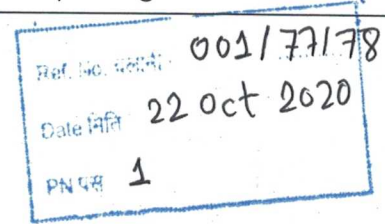 Ref. No. चलानी: 001/77/78
Date मिति 22 Oct 2020
PN पृष्ठ 1